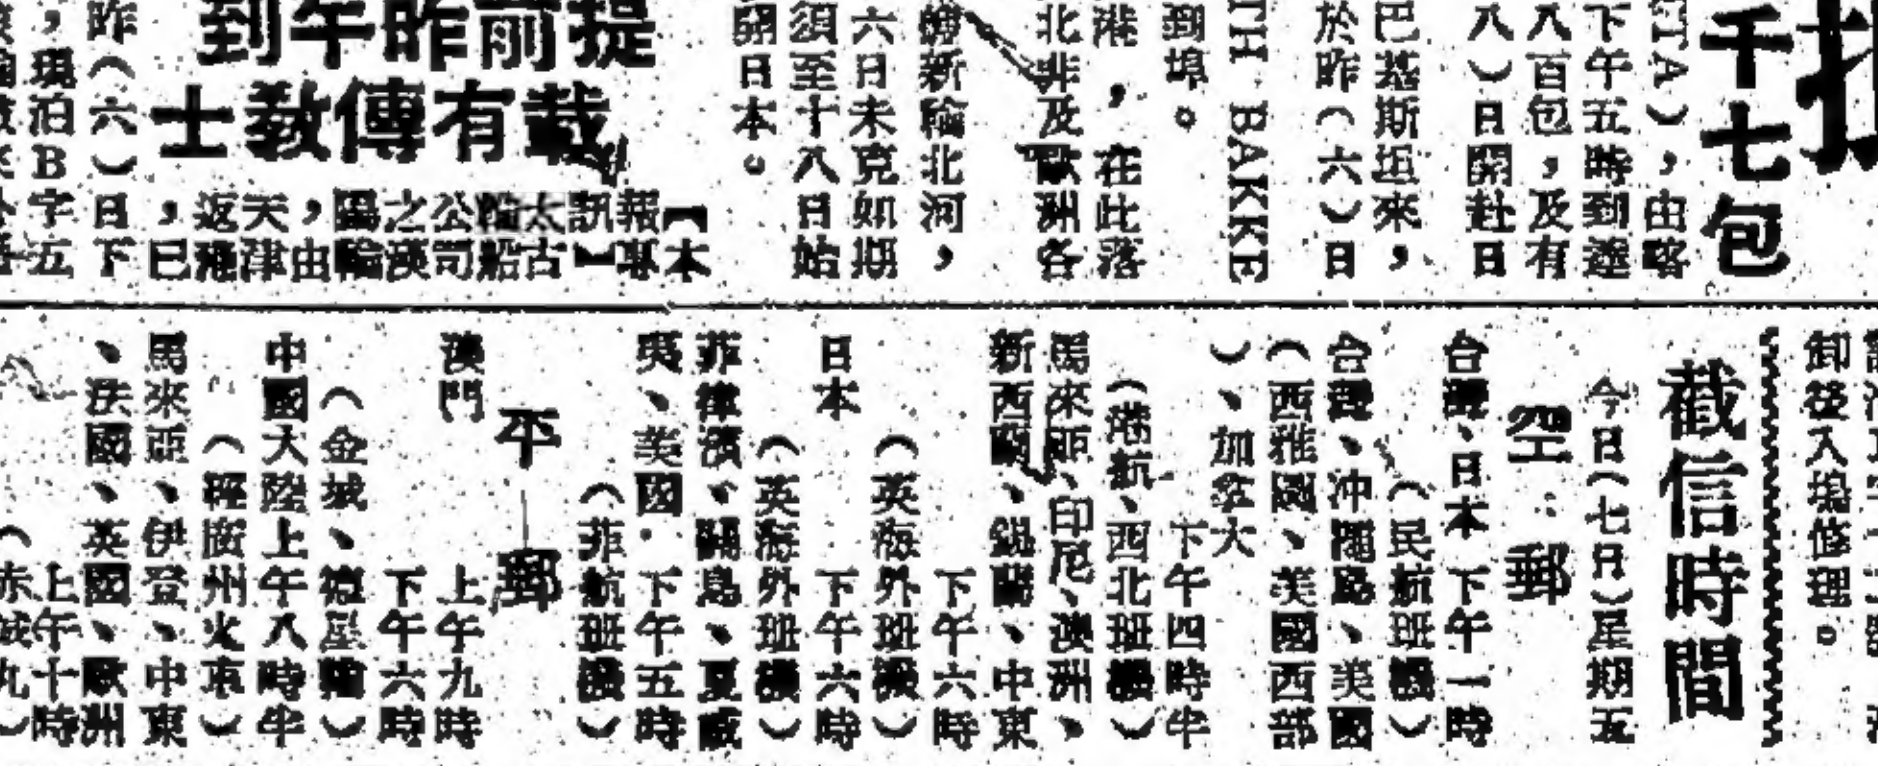 千七包
TTA），由略
下午五時到達
八百包，及有
八）日開赴日
巴基斯坦來，
於昨（六）日
TH BAKKE
到埠。
港，在此落
北非及歐洲各
新輪北河，
六日未克如期
須至十八日始
開日本。
提前昨午到
載有傳教士
【本
報專
訊】
太古
輪船
公司
之漢
陽輪
，由
天津
返港
，已
昨（六）日下
，現泊B字五
卸後入塢修理。
截信時間
今日（七日）星期五
空郵
台灣、日本　下午一時
（民航班機）
台灣、沖繩島、美國
（西雅圖、美國西部
）、加拿大
下午四時半
（港航、西北班機）
馬來亞、印尼、澳洲、
新西蘭、錫蘭、中東
下午六時
（英海外班機）
日本　下午六時
（英海外班機）
菲律濱、關島、夏威
夷、美國．下午五時
（菲航班機）
平郵
澳門　上午九時
下午六時
（金城、德星輪）
中國大陸上午八時半
（經廣州火車）
馬來亞、伊登、中東
、法國、英國、歐洲
上午十時